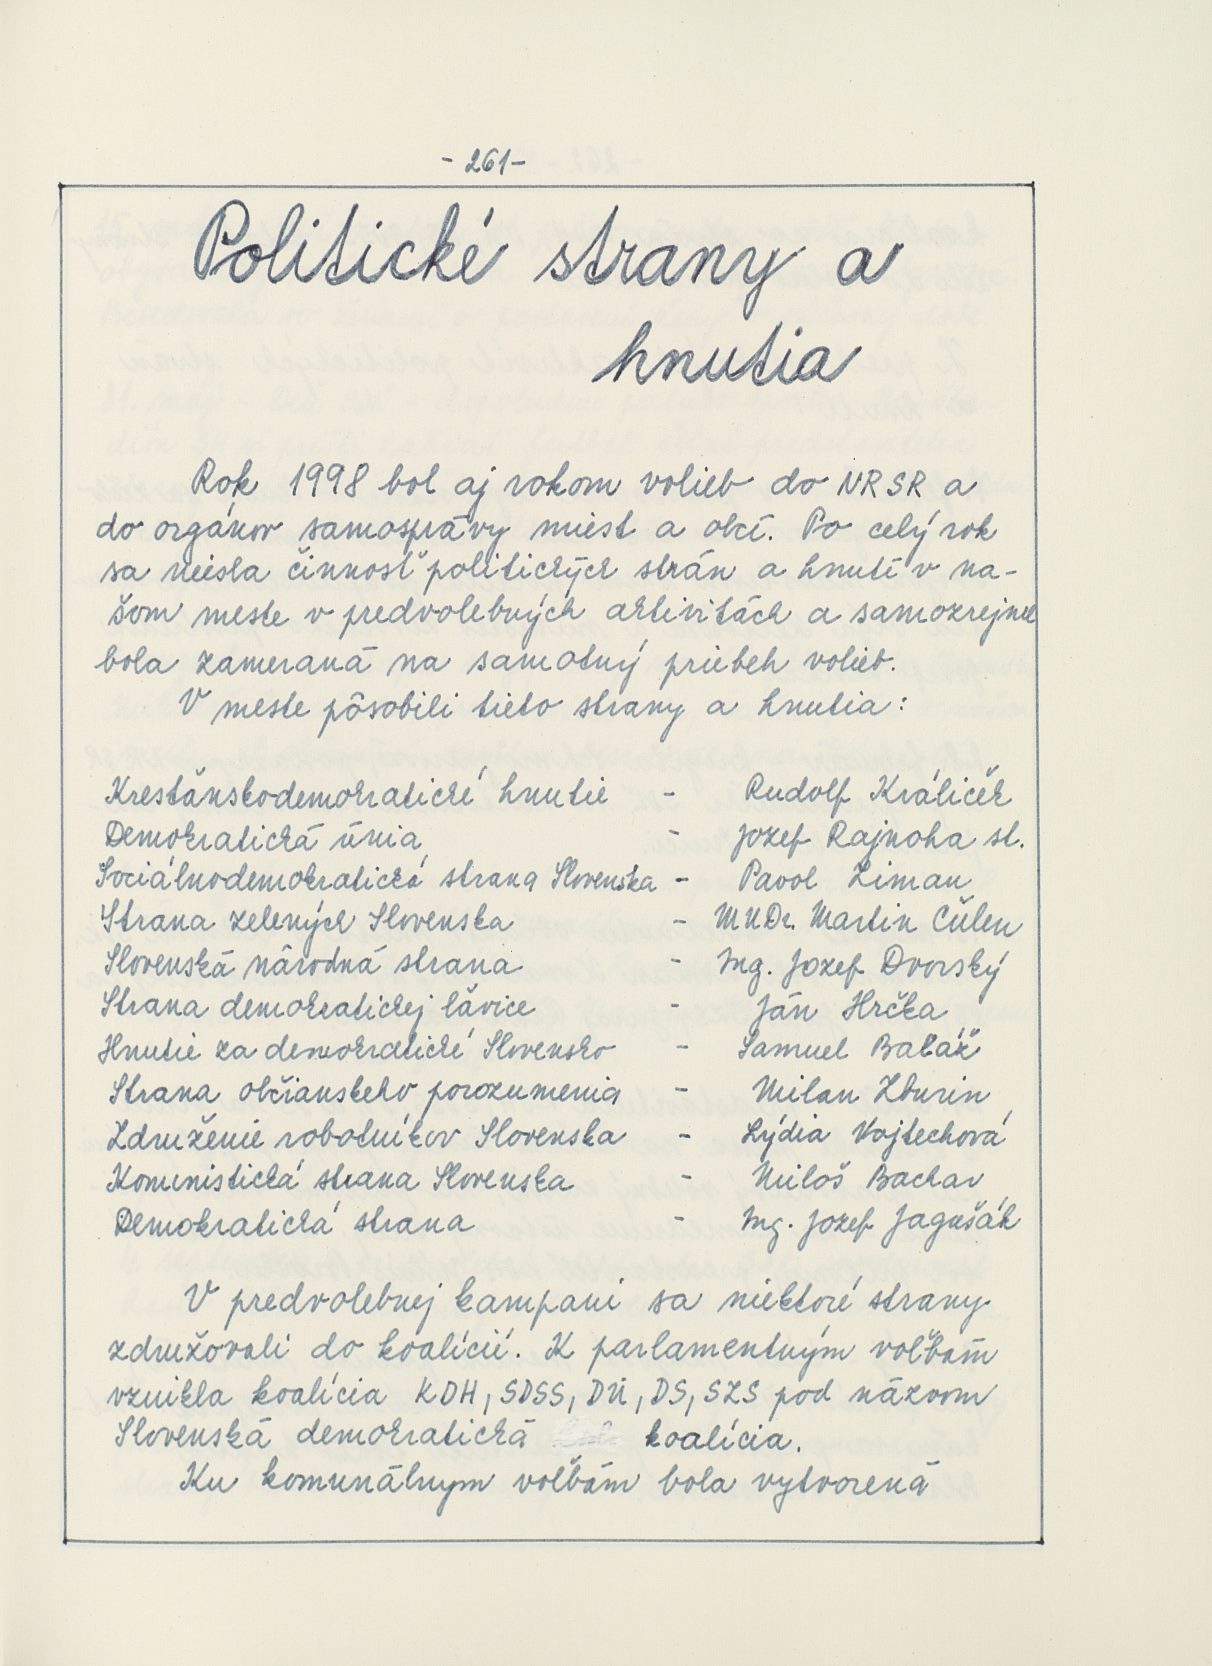 - 261 -
Politické strany a
hnutia
Rok 1998 bol aj rokom volieb do NR SR a
do orgánov samosprávy miest a obcí. Po celý rok
sa niesla činnosť politických strán a hnutí v na-
šom meste v predvolebných aktivitách a samozrejme
bola zameraná na samotný priebeh volieb.
V meste pôsobili tieto strany a hnutia:
Kresťanskodemokratické hnutie - Rudolf Králiček
Demokratická únia - Jozef Rajnoha st.
Sociálnodemokratická strana Slovenska - Pavol Ziman
Strana zelených Slovenska - MUDr. Martin Čulen
Slovenská národná strana - Ing. Jozef Dvorský
Strana demokratickej ľavice - Ján Hrčka
Hnutie za demokratické Slovensko - Samuel Baláž
Strana občianskeho porozumenia - Milan Zburin
Združenie robotníkov Slovenska - Lýdia Vojtechová
Komunistická strana Slovenska - Miloš Bachar
Demokratická strana - Ing. Jozef Jagušák
V predvolebnej kampani sa niektoré strany
združovali do koalícií. K parlamentným voľbám
vznikla koalícia KDH, SDSS, DÚ, DS, SZS pod názvom
Slovenská demokratická koalícia.
Ku komunálnym voľbám bola vytvorená